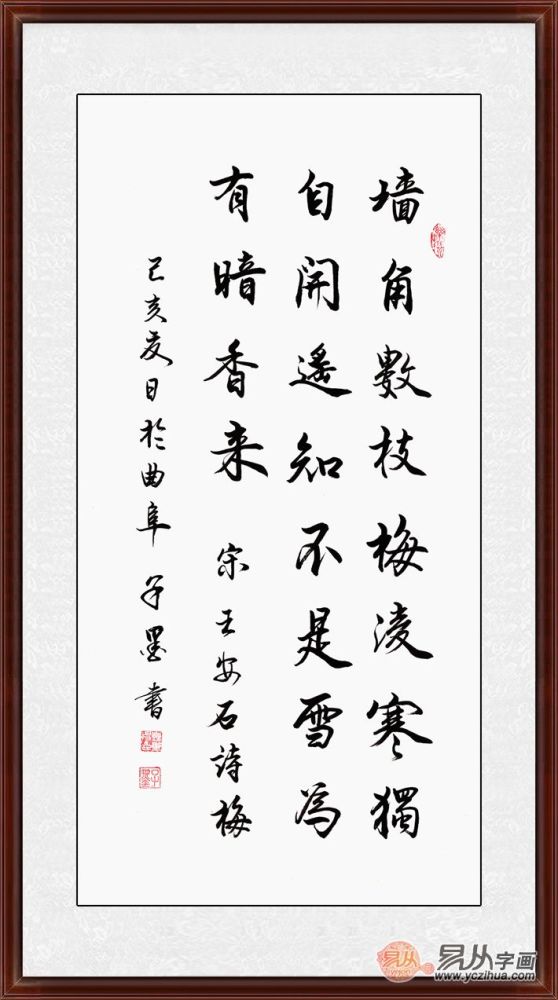 墙角數枝梅凌寒獨
自開遥知不是雪為
有暗香来 宋王安石詩梅
己亥夏日於曲阜 子墨書
易从字画
www.yczihua.com